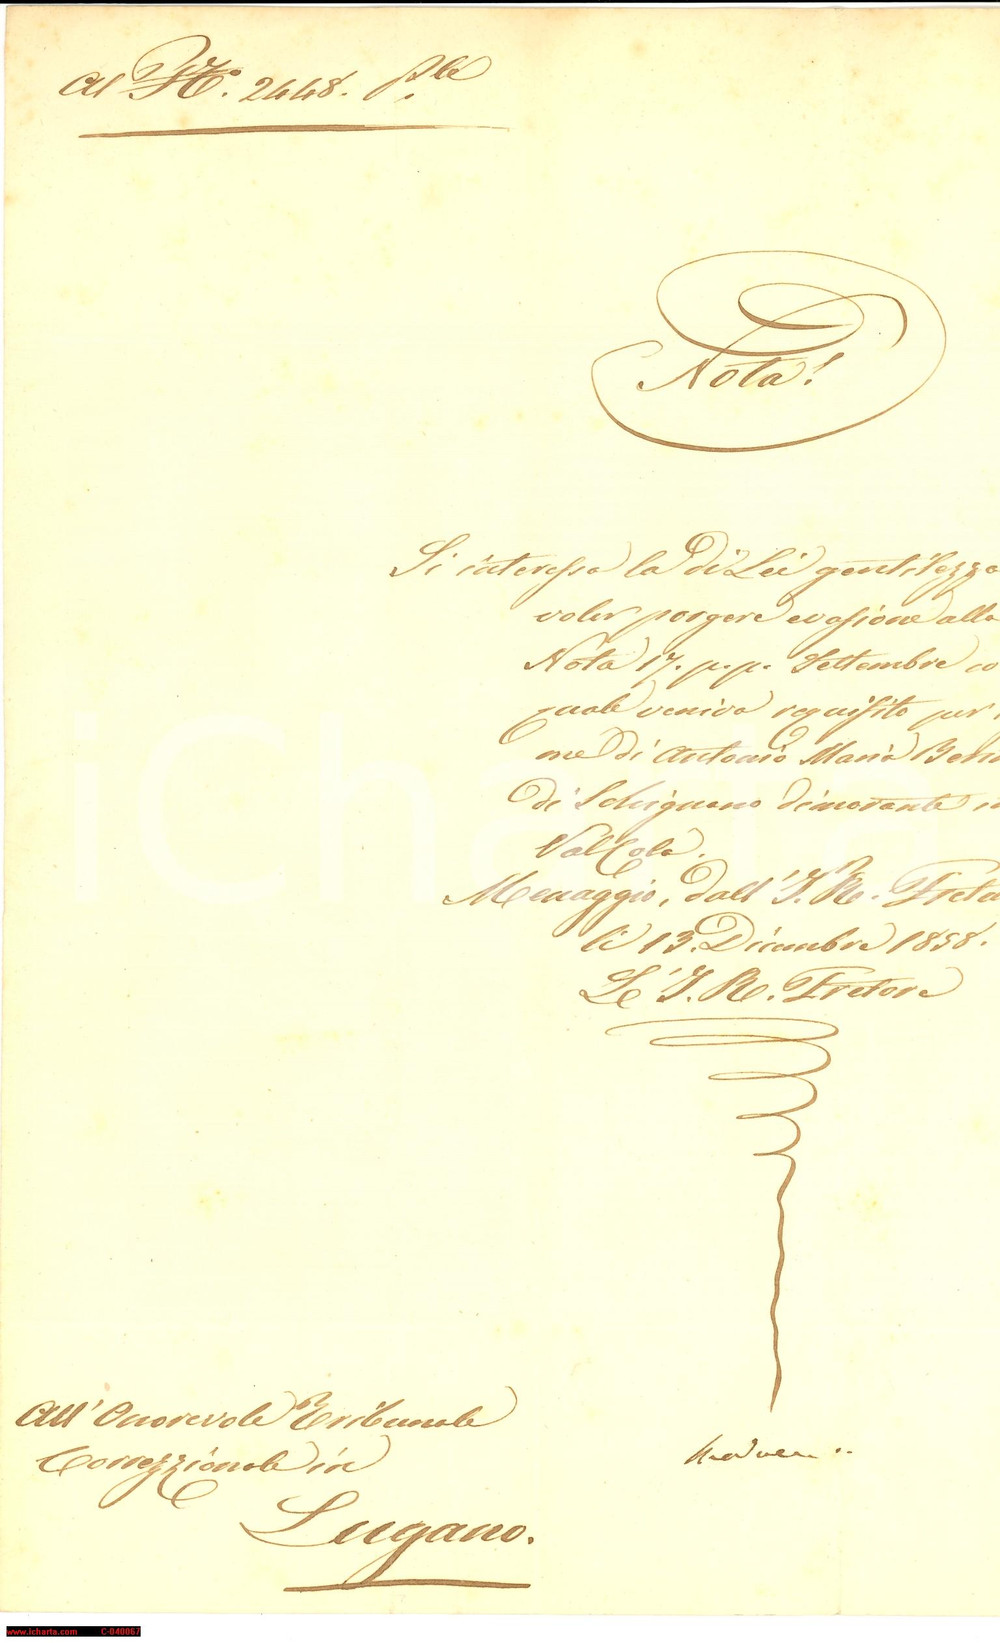 Al N.° 2448. p.le
Nota!
Si interessa la di Lei gentilezza
voler porgere evasione alla
Nota 17. p.p. Settembre co
quale veniva requisito pur
me di Antonio Maria
di Schignano dimorante in
Val Cola.
Menaggio, dall'I. R. Preta
li 13. Dicembre 1858.
L'I. R. Pretore
All'Onorevole Tribunale
Correzzionale in
Lugano.
iCharta
www.icharta.com C-040067